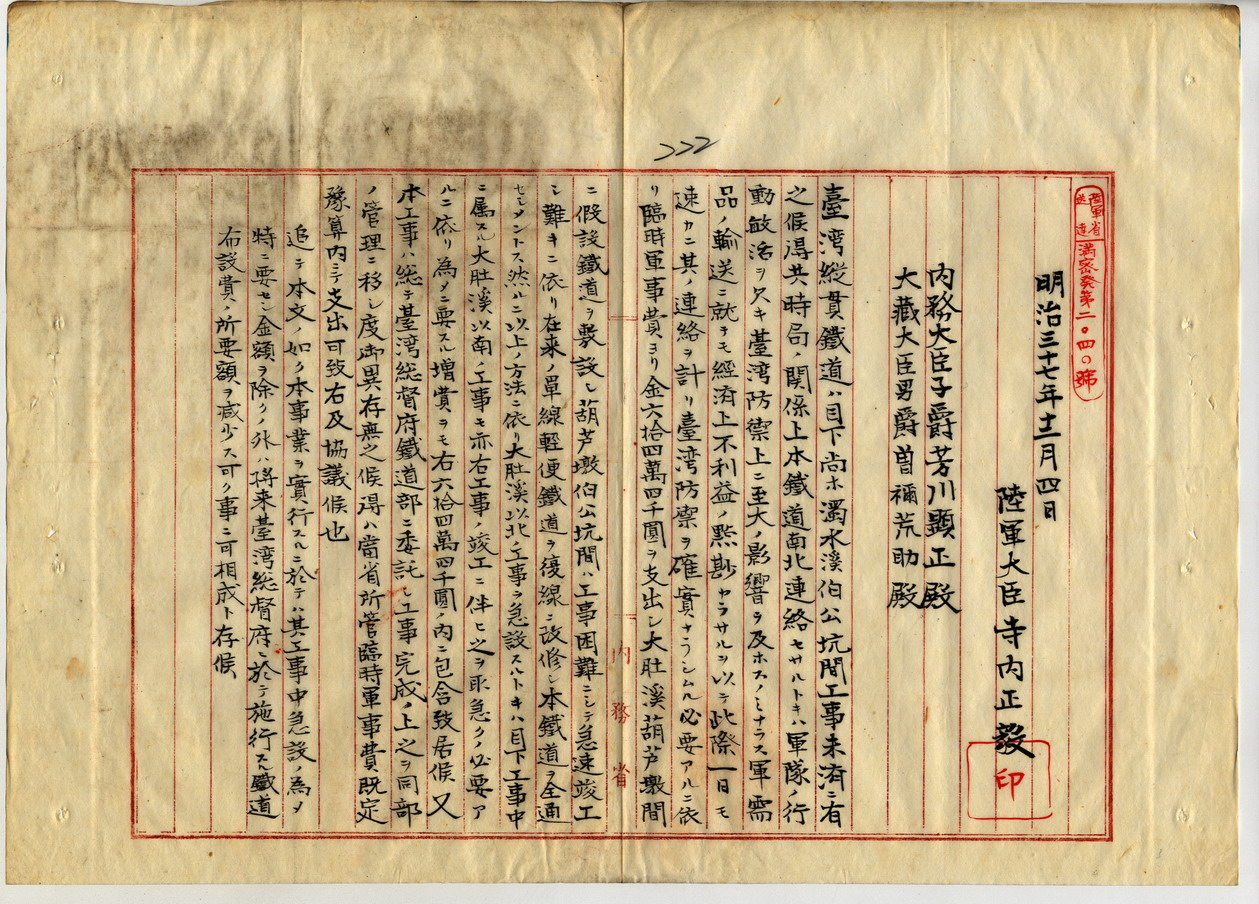 陸軍省
送達
滿密發第二〇四〇號
明治三十七年十二月四日
陸軍大臣寺内正毅
印
内務大臣子爵芳川顕正殿
大藏大臣男爵曽禰荒助殿
臺湾縱貫鐵道ハ目下尚ホ濁水溪伯公坑間工事未済ニ有
之候得共時局ノ関係上本鐵道南北連絡セサルトキハ軍隊ノ行
動敏活ヲ欠キ臺湾防禦上ニ至大ノ影響ヲ及ホスノミナラス軍需
品ノ輸送ニ就テモ経済上不利益ノ㸃尠ヤラサルヲ以テ此際一日モ
速カニ其ノ連絡ヲ計リ臺湾防禦ヲ確實ナラシムル必要アルニ依
リ臨時軍事費ヨリ金六拾四萬四千圓ヲ支出シ大肚溪葫芦墩間
内務省
ニ假設鐵道ヲ敷設シ葫芦墩伯公坑間ハ工事困難ニシテ急速竣工
シ難キニ依リ在来ノ單線軽便鐵道ヲ復線ニ改修シ本鐵道ヲ全通
セシメントス然ルニ以上ノ方法ニ依リ大肚溪以北ノ工事ヲ急設スルトキハ目下工事中
ニ属スル大肚溪以南ノ工事モ亦右工事ノ竣工ニ伴ヒ之ヲ取急クノ必要ア
ルニ依リ為メニ要スル増費ヲモ右六拾四萬四千圓ノ内ニ包含致居候又
本工事ハ総テ臺湾総督府鐵道部ニ委託シ工事完成ノ上之ヲ同部
ノ管理ニ移シ度御異存無之候得ハ當省所管臨時軍事費既定
豫算内ニテ支出可致右及協議候也
追テ本文ノ如ク本事業ヲ實行スルニ於テハ其工事中急設ノ為メ
特ニ要セシ金額ヲ除クノ外ハ将来臺湾総督府ニ於テ施行スル鐵道
布設費ノ所要額ヲ減少ス可ク事ニ可相成ト存候